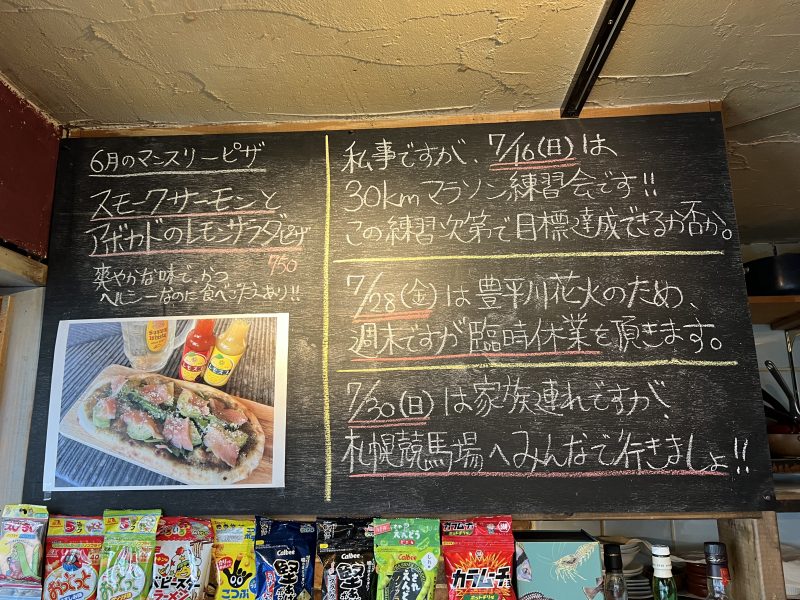 6月のマンスリーピザ
スモークサーモンと
アボカドのレモンサラダピザ
750
爽やかな味で、かつ
ヘルシーなのに食べごたえあり!!
私事ですが、7/16(日)は、
30kmマラソン練習会です!!
この練習次第で目標達成できるか否か。
7/28(金)は豊平川花火のため、
週末ですが臨時休業を頂きます。
7/30(日)は家族連れですが、
札幌競馬場へみんなで行きましょ!!
おっとっと
ベビースター
ラーメン
Calbee
堅
Calbee
堅
Calbee
さや
えんどう
カラムーチョ